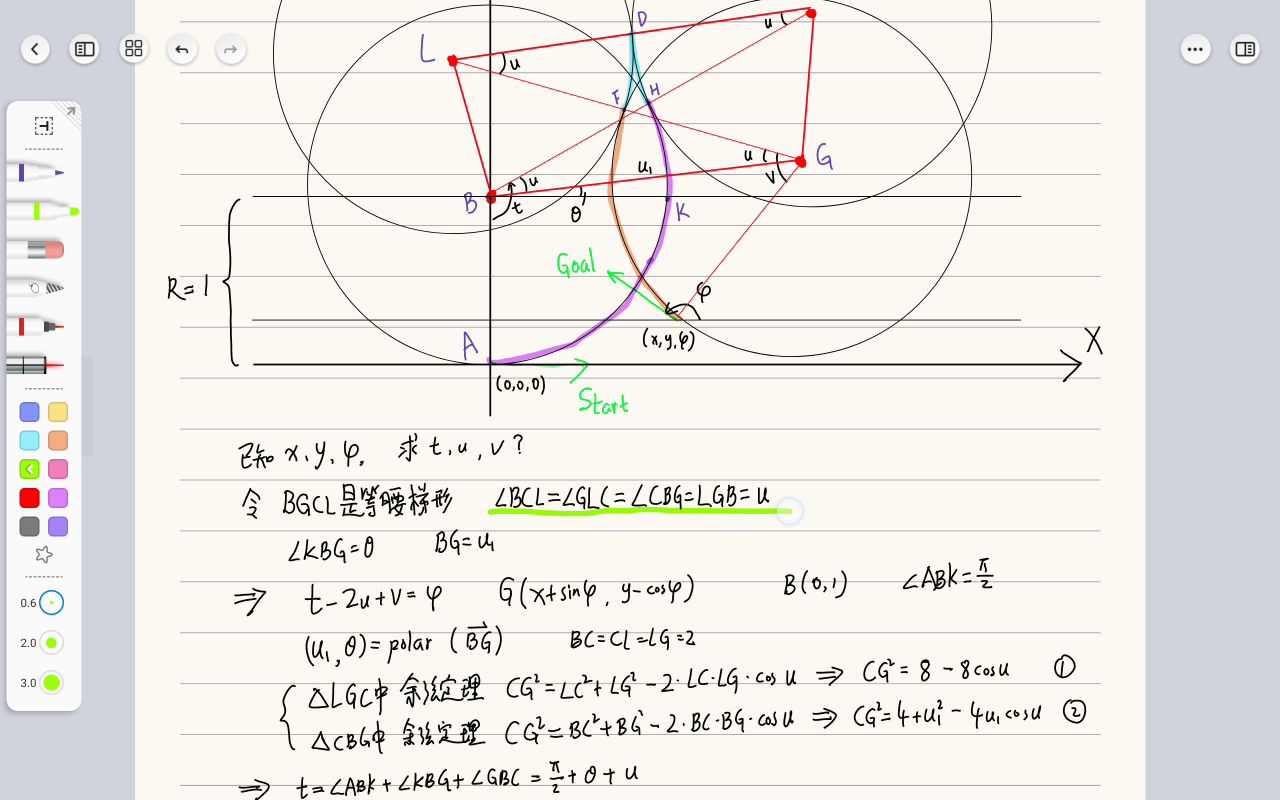 D
u
L
u
F H
u G
v
u₁
u
B t θ K
Goal
R=1
φ
(x,y,φ)
A
X
(0,0,0)
Start
已知 x,y,φ, 求 t,u,v?
令 BGCL是等腰梯形 ∠BCL=∠GLC=∠CBG=LGB=u
∠KBG=θ BG=u₁
⇒ t-2u+v=φ G(x+sinφ, y-cosφ) B(0,1) ∠ABK=π/2
(u₁,θ)=polar(BG→) BC=CL=LG=2
△LGC中 余弦定理 CG²=LC²+LG²-2·LC·LG·cosu ⇒ CG²=8-8cosu ①
△CBG中 余弦定理 CG²=BC²+BG²-2·BC·BG·cosu ⇒ CG²=4+u₁²-4u₁cosu ②
⇒ t=∠ABK+∠KBG+∠GBC=π/2+θ+u
0.6
2.0
3.0